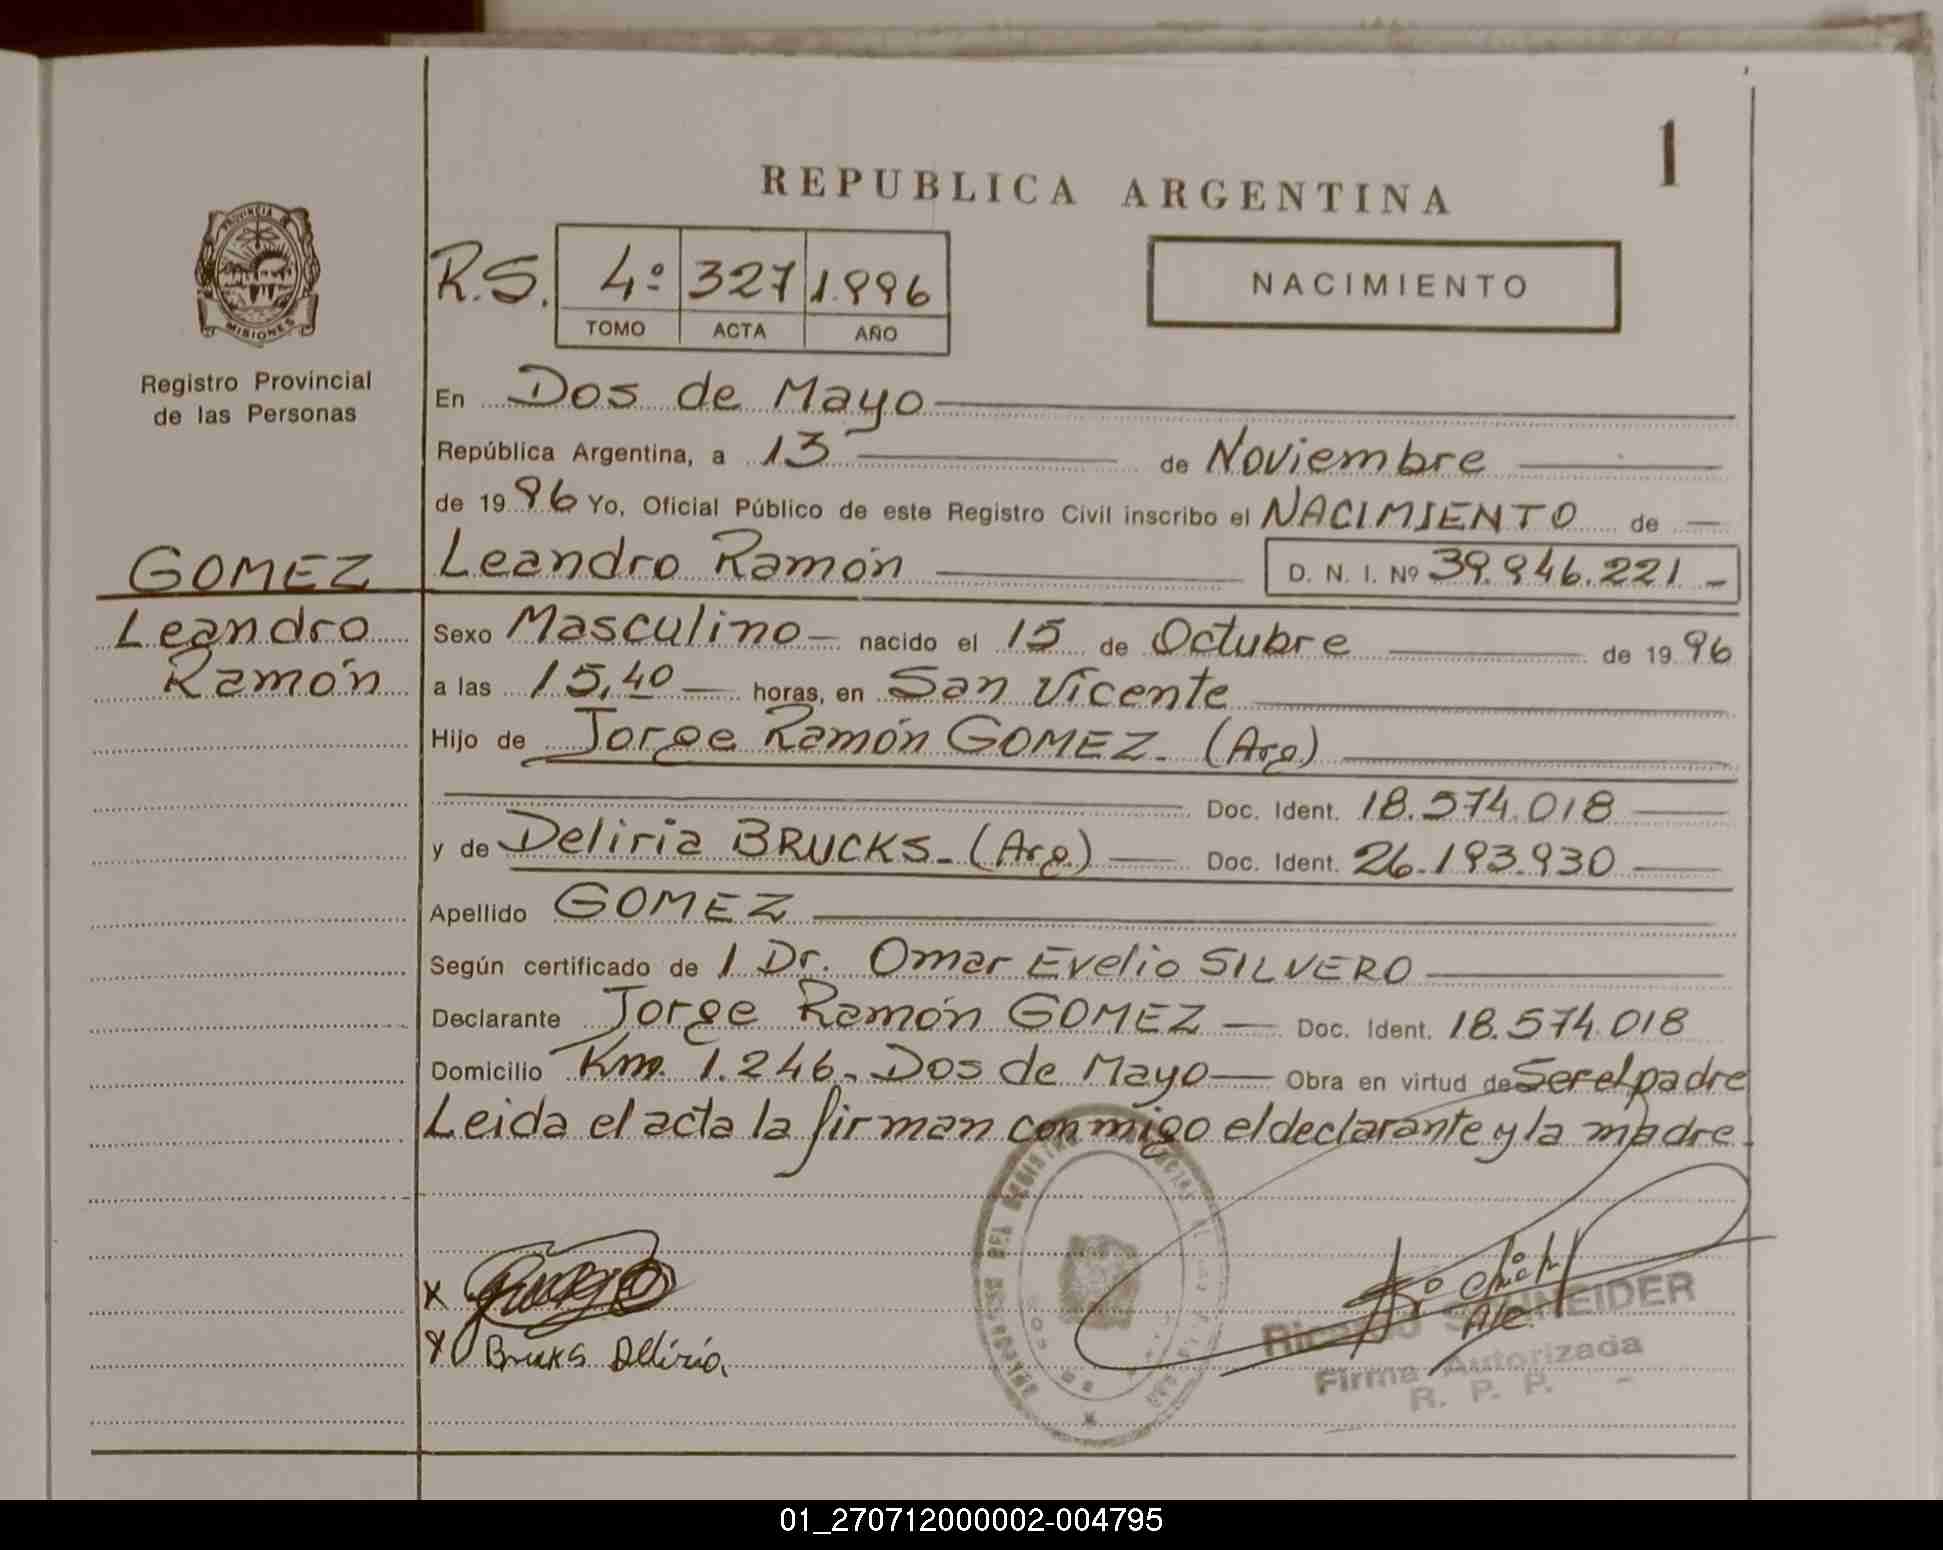 1
REPUBLICA ARGENTINA
PROVINCIA DE
MISIONES
Registro Provincial
de las Personas
R.S. 4º 327 1.996
TOMO ACTA AÑO
NACIMIENTO
En Dos de Mayo
República Argentina, a 13 de Noviembre
de 1996 Yo, Oficial Público de este Registro Civil inscribo el NACIMIENTO de
GOMEZ Leandro Ramón D. N. I. Nº 39.946.221
Leandro Sexo Masculino nacido el 15 de Octubre de 1996
Ramón a las 15,40 horas, en San Vicente
Hijo de Jorge Ramón GOMEZ. (Arg)
Doc. Ident. 18.574.018
y de Deliria BRUCKS. (Arg) Doc. Ident. 26.193.930
Apellido GOMEZ
Según certificado de 1 Dr. Omar Evelio SILVERO
Declarante Jorge Ramón GOMEZ Doc. Ident. 18.574.018
Domicilio Km. 1.246. Dos de Mayo Obra en virtud de Ser el padre
Leida el acta la firman conmigo el declarante y la madre.
X
X Brucks Deliria.
Ricardo SCHNEIDER
Firma Autorizada
R. P. P.
01_270712000002-004795